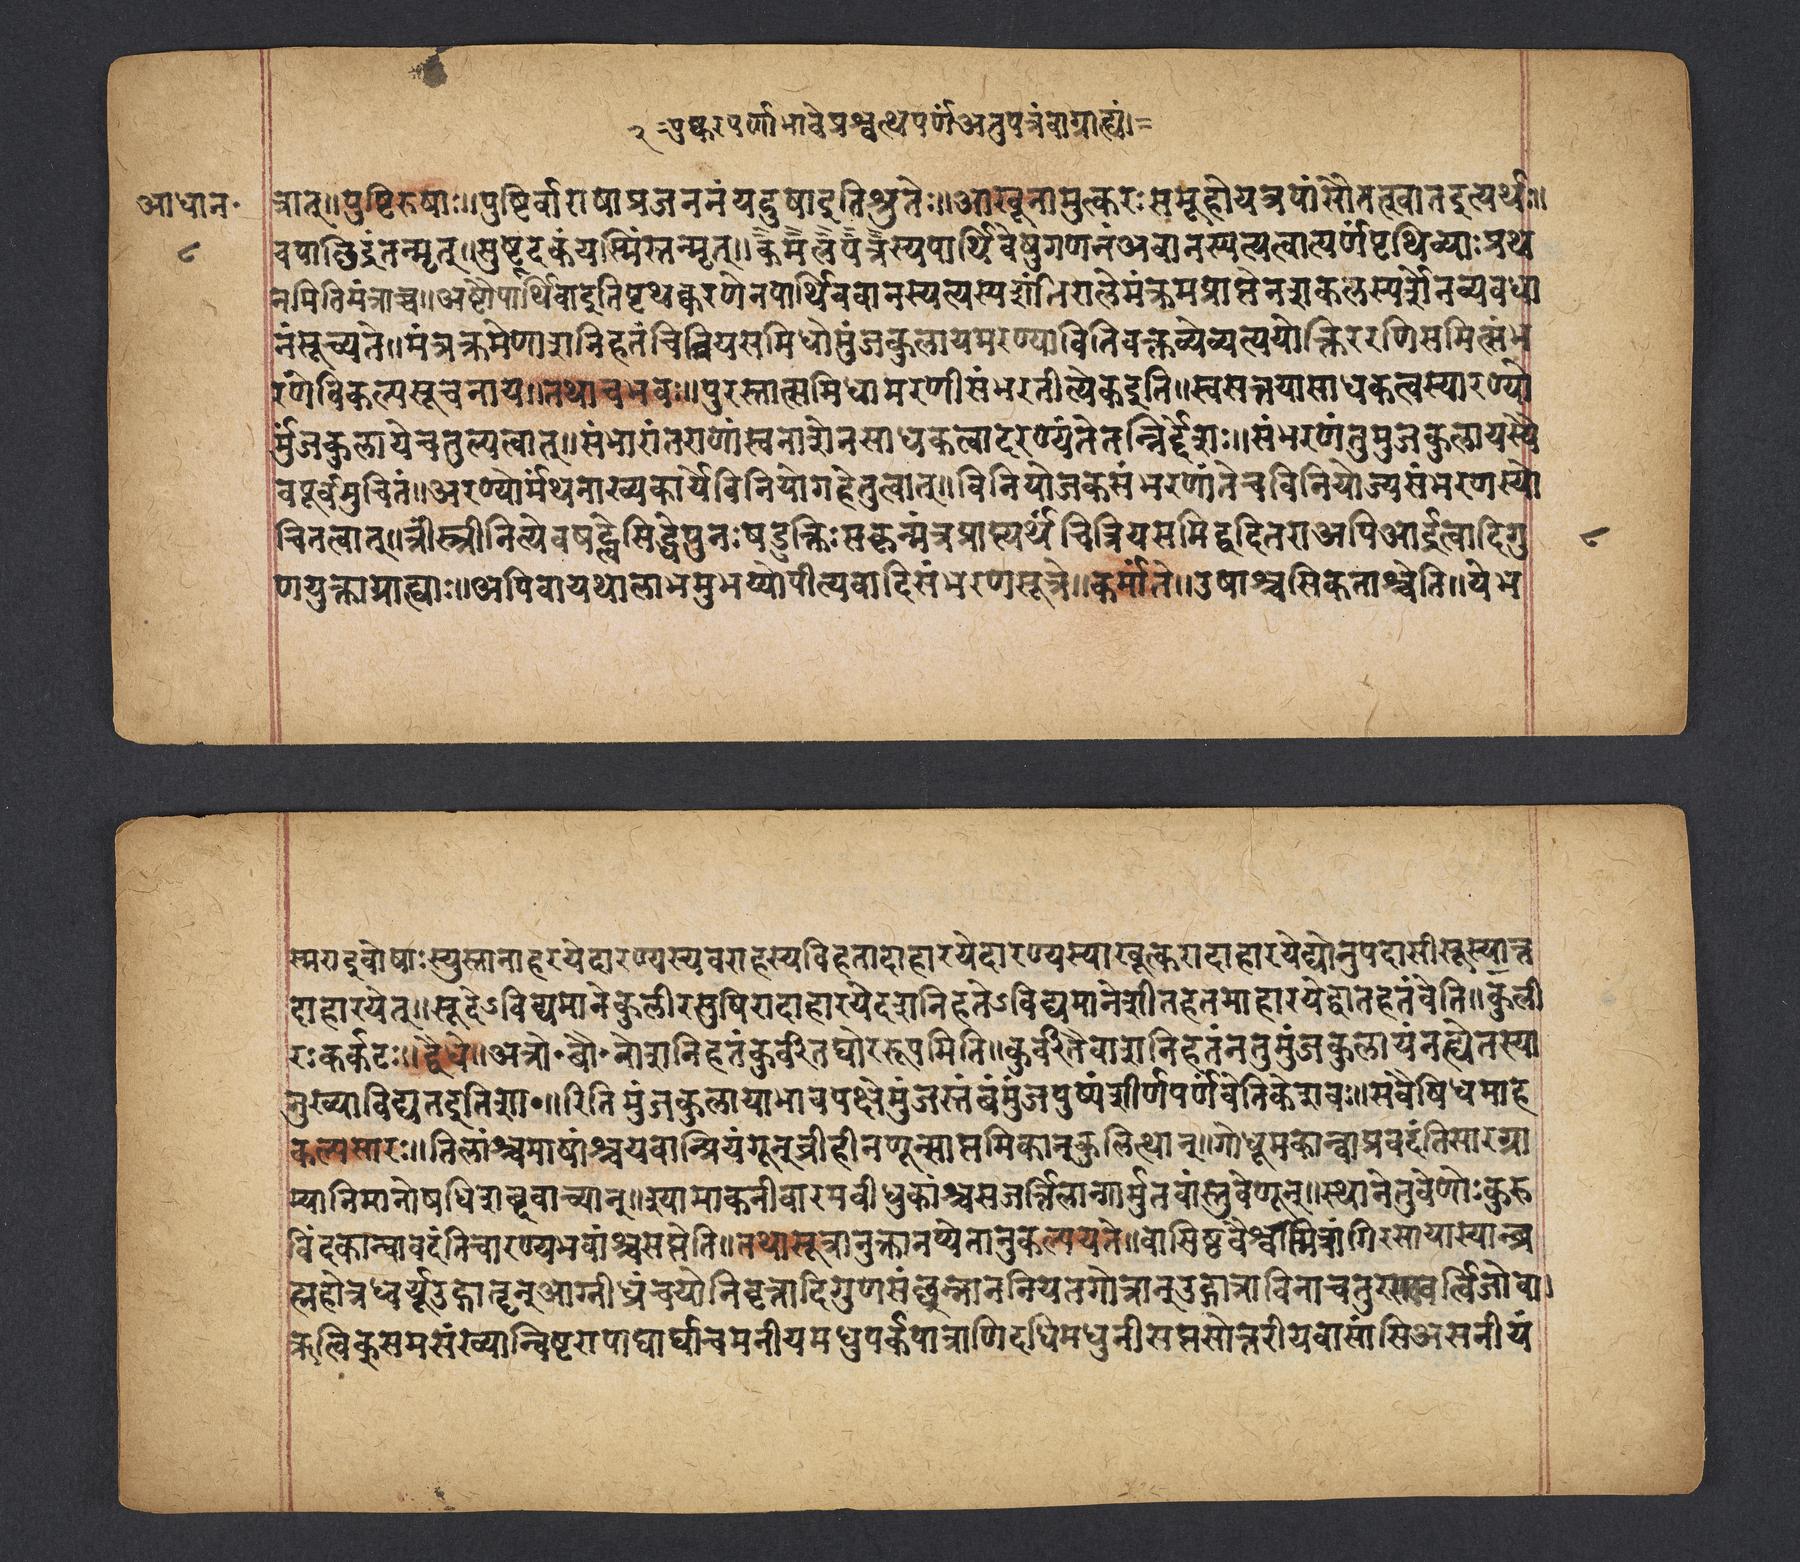 २ =पुष्करपर्णाभावेअश्वत्थपर्णंअतुपत्रंवाग्राह्यं।=
आधान॰
८
त्रात्॥पुष्टिरूषाः॥पुष्टिर्वाराषाप्रजननंयदूषाइतिश्रुतेः॥आखूनामुत्करःसमूहोयत्रपांसौततत्रवातइत्यर्थः॥
वपाछिद्रंतन्मृत्॥सुष्टूदकंयस्मिंस्तन्मृत्॥कमलपत्रस्यपार्थिवेषुगणनंअवानस्पत्यत्वात्पर्णंपृथिव्याःप्रथ
नमितिमंत्राच्च॥अष्टौपार्थिवाइतिपृथक्करणेनपार्थिववानस्पत्यस्य मंत्रक्रमप्राप्तेन नव्यवधा
नंसूच्यते॥मंत्रक्रमेणाशनिहतंचित्रियसमिधौमुंजकुलायमरण्यावितिवक्तव्येव्यत्ययोक्तिररणिसमित्संभ
रणेविकल्पसूचनाय॥तथाचभवः॥पुरस्तात्समिधामरणीसंभरतीत्येकइति॥स्वसत्तयासाधकत्वस्यारण्यो
र्मुंजकुलायेचतुल्यत्वात्॥संभारांतराणांस्वनाशेनसाधकत्वादरण्यंतेतन्निर्द्देशः॥संभरणंतुमुंजकुलायस्यै
वपूर्वमुचितं॥अरण्योर्मंथनाख्यकार्येविनियोगहेतुत्वात्॥विनियोजकसंभरणांतेचविनियोज्यसंभरणस्यो
चितत्वात्॥त्रीस्त्रीनित्येवषट्त्वेसिद्धेपुनःषडुक्तिःसकृन्मंत्रप्राप्त्यर्थं चित्रियसमिद्वदितराअपिआर्द्रत्वादिगु
८
णयुक्ताग्राह्याः॥अपिवायथालाभमुभय्योपीत्यवादिसंभरणसूत्रे॥कर्मांते॥उषाश्चसिकताश्चेति॥येभ
स्मराइवोषाःस्युस्तानाहरयेदारण्यस्यवराहस्यविहतादाहारयेदारण्यस्याखूत्करादाहारयेद्योनुपदासीसूस्यान्त
दाहारयेत्॥सूदेऽविद्यमानेकुलीरसुषिरादाहारयेदशनिहतेऽविद्यमानेशीतहतमाहारयेद्वातहतंवेति॥कुली
रःकर्कटः॥द्वैधे॥अत्रो॰बौ॰नाशनिहतंकुर्वीरितघोररूपमिति॥कुर्वीरितैवाशनिहतंनतुमुंजकुलायंनह्येतस्या
तुख्याविद्यतइतिशा॰॥रितिमुंजकुलायाभावपक्षेमुंजस्तंबंमुंजपुष्पंशीर्णपर्णंवेतिकेशवः॥सर्वौषधिमाह
कल्पसारः॥तिलांश्चमाषांश्चयवान्प्रियंगून्व्रीहीनणून्साप्तमिकान्कुलित्थान्॥गोधूमकान्वाप्रवदंतिसारग्रा
म्यानिमानोषधिशब्दवाच्यान्॥श्यामाकनीवारमवीधुकांश्चसजर्त्तिलान्गार्मुतवांस्तुवेणून्॥स्थानेतुवेणोःकुरु
विंदकान्वावदंतिचारण्यभवांश्चसप्तेति॥तथासूत्रानुक्तानप्येतानुकल्पयते॥वासिष्ठवैश्वामित्रांगिरसायास्यान्ब्र
ह्महोत्रध्वर्यूउद्गातॄन्आग्नीध्रंचयोनिवृत्तादिगुणसंछुन्नाननियतगोत्रान्उद्गात्राविनाचतुर र्त्विजोवा।
ऋत्विक्समसंख्यान्विष्टरापाद्यार्घाचमनीयमधुपर्कपात्राणिदधिमधुनीसप्तसोत्तरीयवासांसिअसनीयं